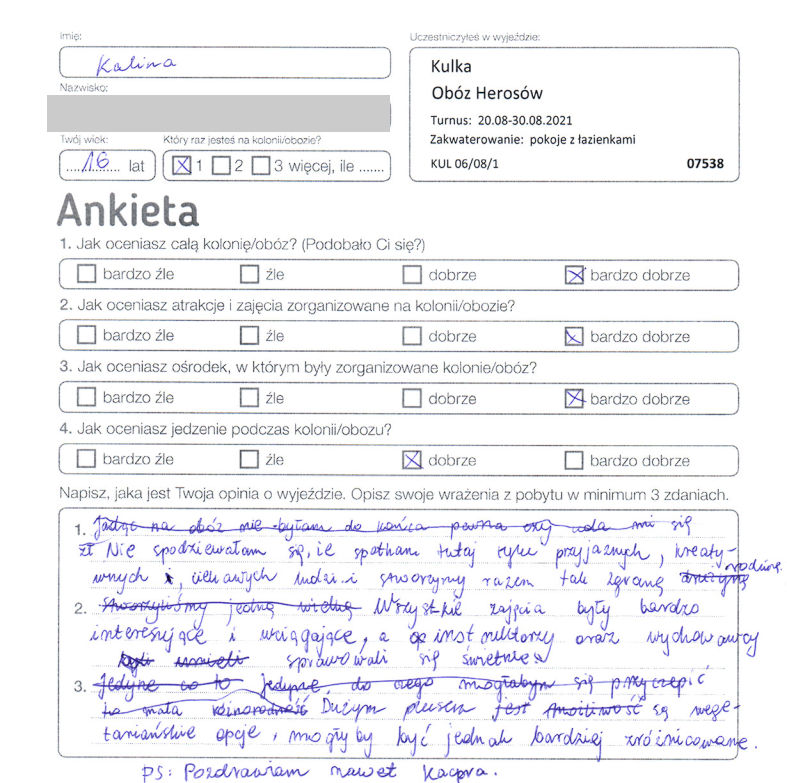 Imię:
Kalina
Nazwisko:
Twój wiek:
16 lat
Który raz jesteś na kolonii/obozie?
1 2 3 więcej, ile .......
Uczestniczyłeś w wyjeździe:
Kulka
Obóz Herosów
Turnus: 20.08-30.08.2021
Zakwaterowanie: pokoje z łazienkami
KUL 06/08/1 07538
Ankieta
1. Jak oceniasz całą kolonię/obóz? (Podobało Ci się?)
bardzo źle źle dobrze bardzo dobrze
2. Jak oceniasz atrakcje i zajęcia zorganizowane na kolonii/obozie?
bardzo źle źle dobrze bardzo dobrze
3. Jak oceniasz ośrodek, w którym były zorganizowane kolonie/obóz?
bardzo źle źle dobrze bardzo dobrze
4. Jak oceniasz jedzenie podczas kolonii/obozu?
bardzo źle źle dobrze bardzo dobrze
Napisz, jaka jest Twoja opinia o wyjeździe. Opisz swoje wrażenia z pobytu w minimum 3 zdaniach.
1. Jadąc na obóz nie byłam do końca pewna czy uda mi się
Nie spodziewałam się, że spotkam tutaj tylu przyjaznych, kreaty-
wnych i ciekawych ludzi i stworzymy razem tak zgraną drużynę rodzinę.
2. Stworzyliśmy jedną wielką Wszystkie zajęcia były bardzo
interesujące i wciągające, a instruktorzy oraz wychowawcy
byli umieli sprawowali się świetnie
3. Jedyne co to jedyne, do czego mogłabym się przyczepić
to mała różnorodność Dużym plusem jest możliwość są wege-
tariańskie opcje, mogłyby być jednak bardziej zróżnicowane.
PS: Pozdrawiam nawet Kacpra.